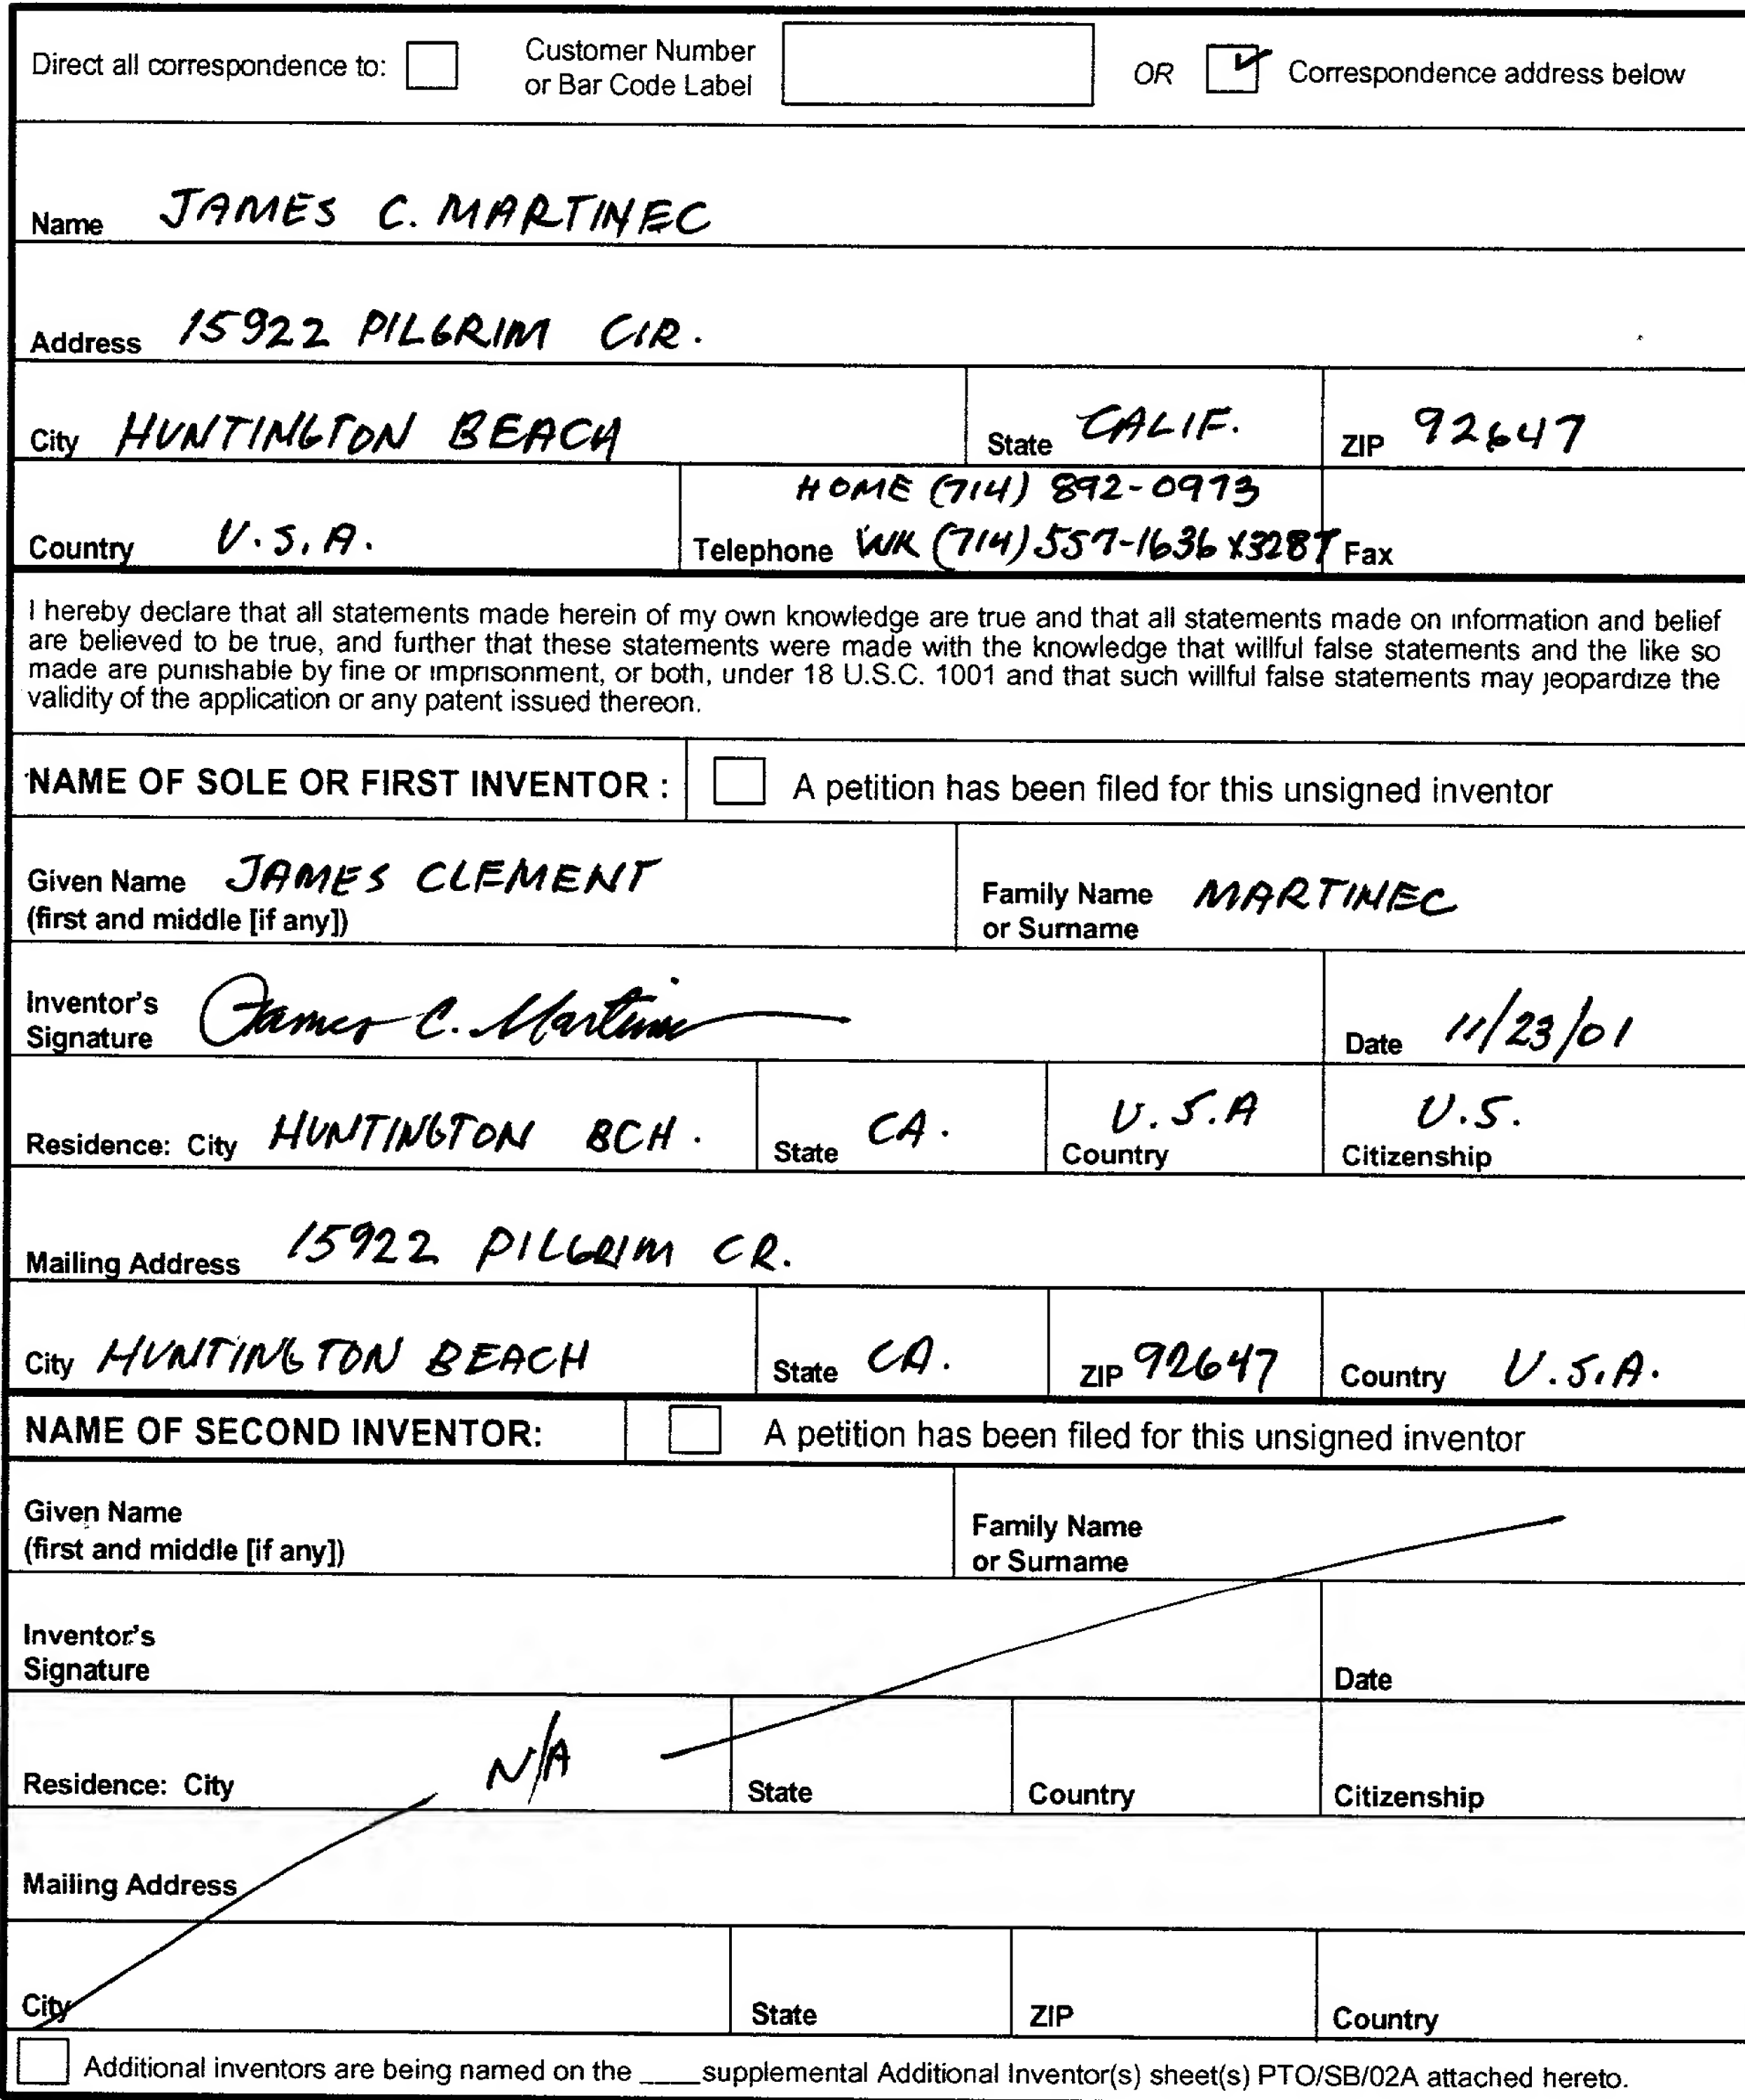 Direct all correspondence to: Customer Number or Bar Code Label OR Correspondence address below
Name JAMES C. MARTINEC
Address 15922 PILGRIM CIR.
City HUNTINGTON BEACH State CALIF. ZIP 92647
HOME (714) 892-0973
Country U.S.A. Telephone WK (714) 557-1636 X3287 Fax
I hereby declare that all statements made herein of my own knowledge are true and that all statements made on information and belief
are believed to be true, and further that these statements were made with the knowledge that willful false statements and the like so
made are punishable by fine or imprisonment, or both, under 18 U.S.C. 1001 and that such willful false statements may jeopardize the
validity of the application or any patent issued thereon.
NAME OF SOLE OR FIRST INVENTOR : A petition has been filed for this unsigned inventor
Given Name JAMES CLEMENT
(first and middle [if any])
Family Name MARTINEC
or Surname
Inventor's
Signature James C. Martinec
Date 11/23/01
Residence: City HUNTINGTON BCH. State CA. Country U.S.A Citizenship U.S.
Mailing Address 15922 PILGRIM CR.
City HUNTINGTON BEACH State CA. ZIP 92647 Country U.S.A.
NAME OF SECOND INVENTOR: A petition has been filed for this unsigned inventor
Given Name
(first and middle [if any])
Family Name
or Surname
Inventor's
Signature
Date
Residence: City N/A State Country Citizenship
Mailing Address
City State ZIP Country
Additional inventors are being named on the ____supplemental Additional Inventor(s) sheet(s) PTO/SB/02A attached hereto.